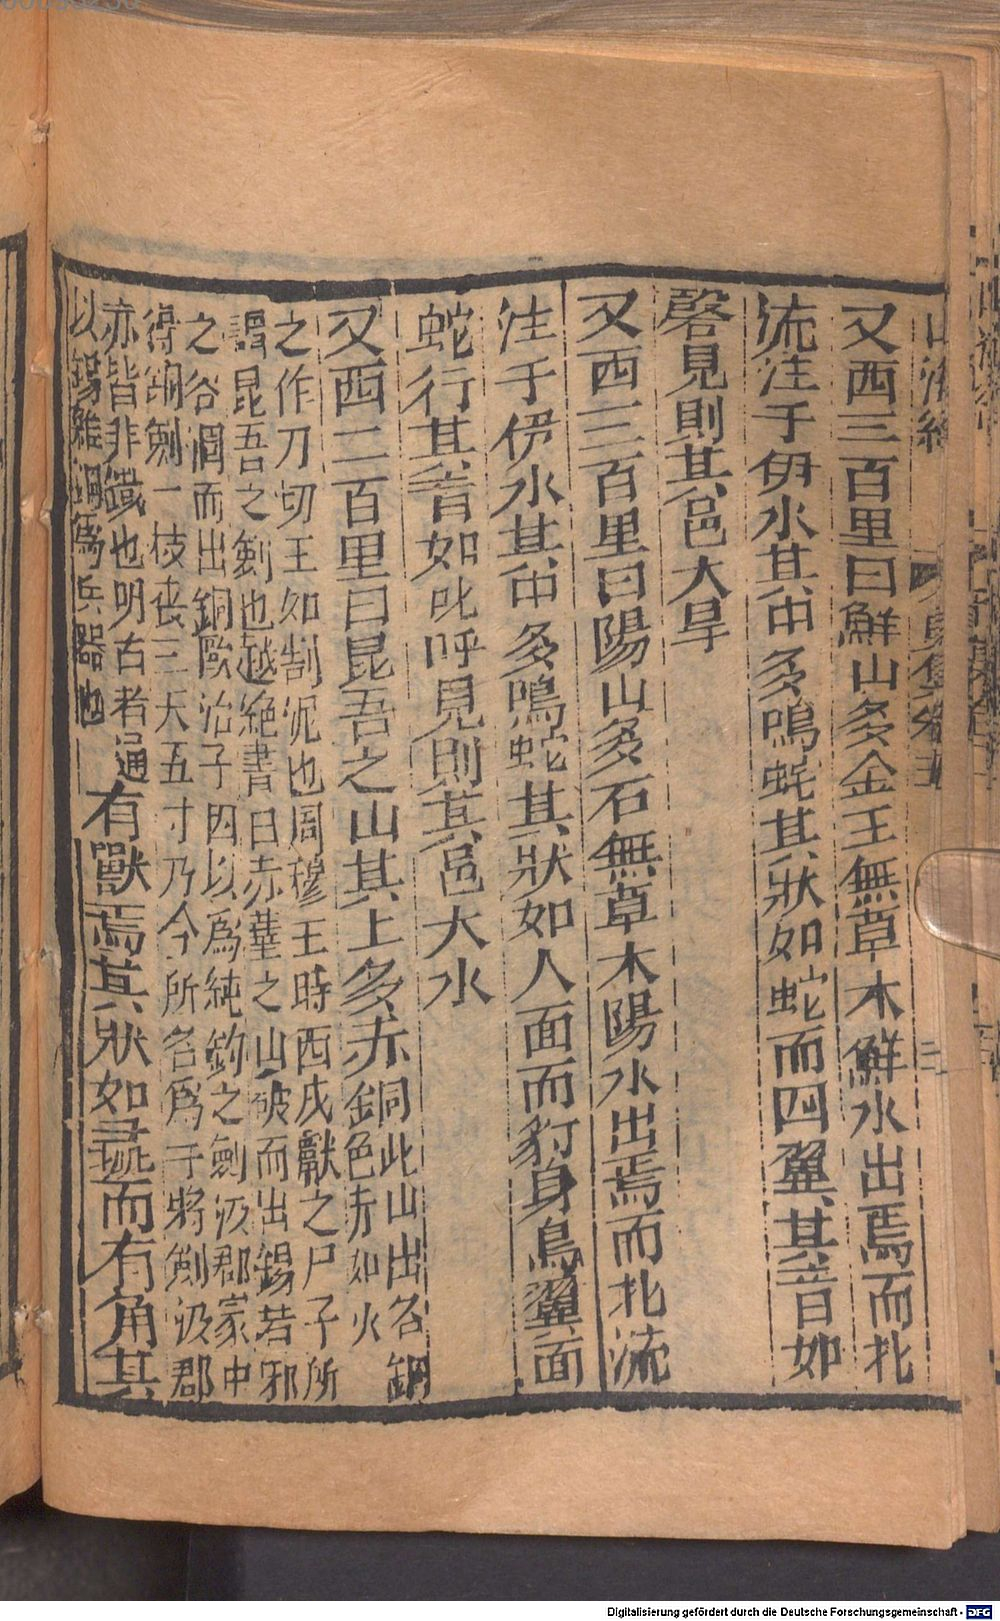 山海經
又西三百里曰鮮山多金玉無草木鮮水出焉而北
流注于伊水其中多鳴蛇其狀如蛇而四翼其音如
磬見則其邑大旱
又西三百里曰陽山多石無草木陽水出焉而北流
注于伊水其中多鳴蛇其狀如人面而豹身鳥翼面
蛇行其音如叱呼見則其邑大水
又西二百里曰昆吾之山其上多赤銅此山出名銅
色赤如火
之作刀切玉如割泥也周穆王時西戎獻之尸子所
謂昆吾之劍也越絕書曰赤堇之山破而出錫若邪
之谷涸而出銅歐冶子因以爲純鈞之劍汲郡冢中
得銅劍一枝長三尺五寸乃今所名爲干將劍汲郡
亦皆非鐵也明古者通
以錫雜銅爲兵器也
有獸焉其狀如彘而有角其
Digitalisierung gefördert durch die Deutsche Forschungsgemeinschaft - DFG